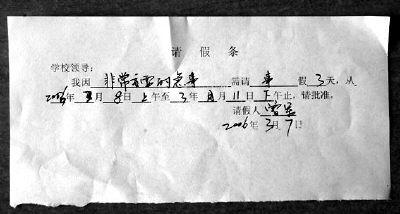 请 假 条
学校领导:
我因 非常重要的急事 需请 事 假 3 天,从
2006年 3 月 8 日 上 午至 年 月 11 日 下 午止,请批准。
请假人
2006年 3月 7日